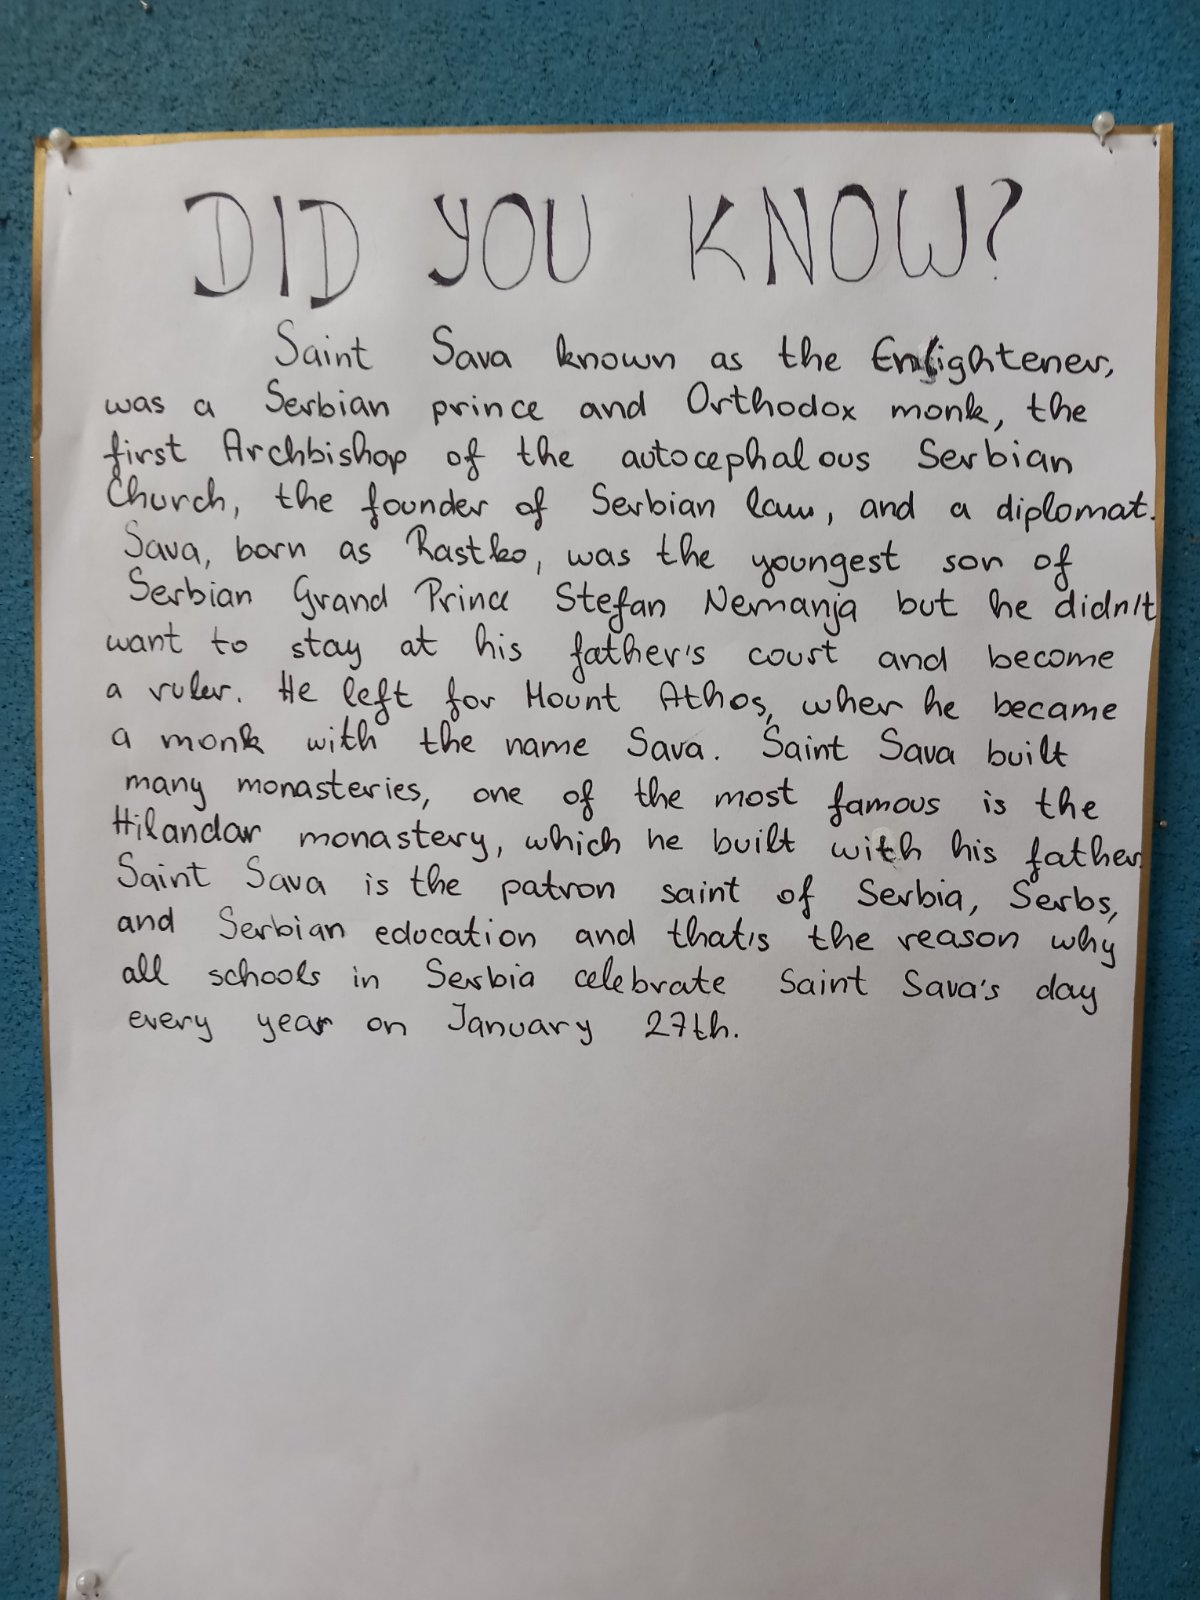 DID YOU KNOW?
Saint Sava known as the Enlightener,
was a Serbian prince and Orthodox monk, the
first Archbishop of the autocephalous Serbian
Church, the founder of Serbian law, and a diplomat.
Sava, born as Rastko, was the youngest son of
Serbian Grand Prince Stefan Nemanja but he didn't
want to stay at his father's court and become
a ruler. He left for Mount Athos, wher he became
a monk with the name Sava. Saint Sava built
many monasteries, one of the most famous is the
Hilandar monastery, which he built with his father.
Saint Sava is the patron saint of Serbia, Serbs,
and Serbian education and that's the reason why
all schools in Serbia celebrate Saint Sava's day
every year on January 27th.